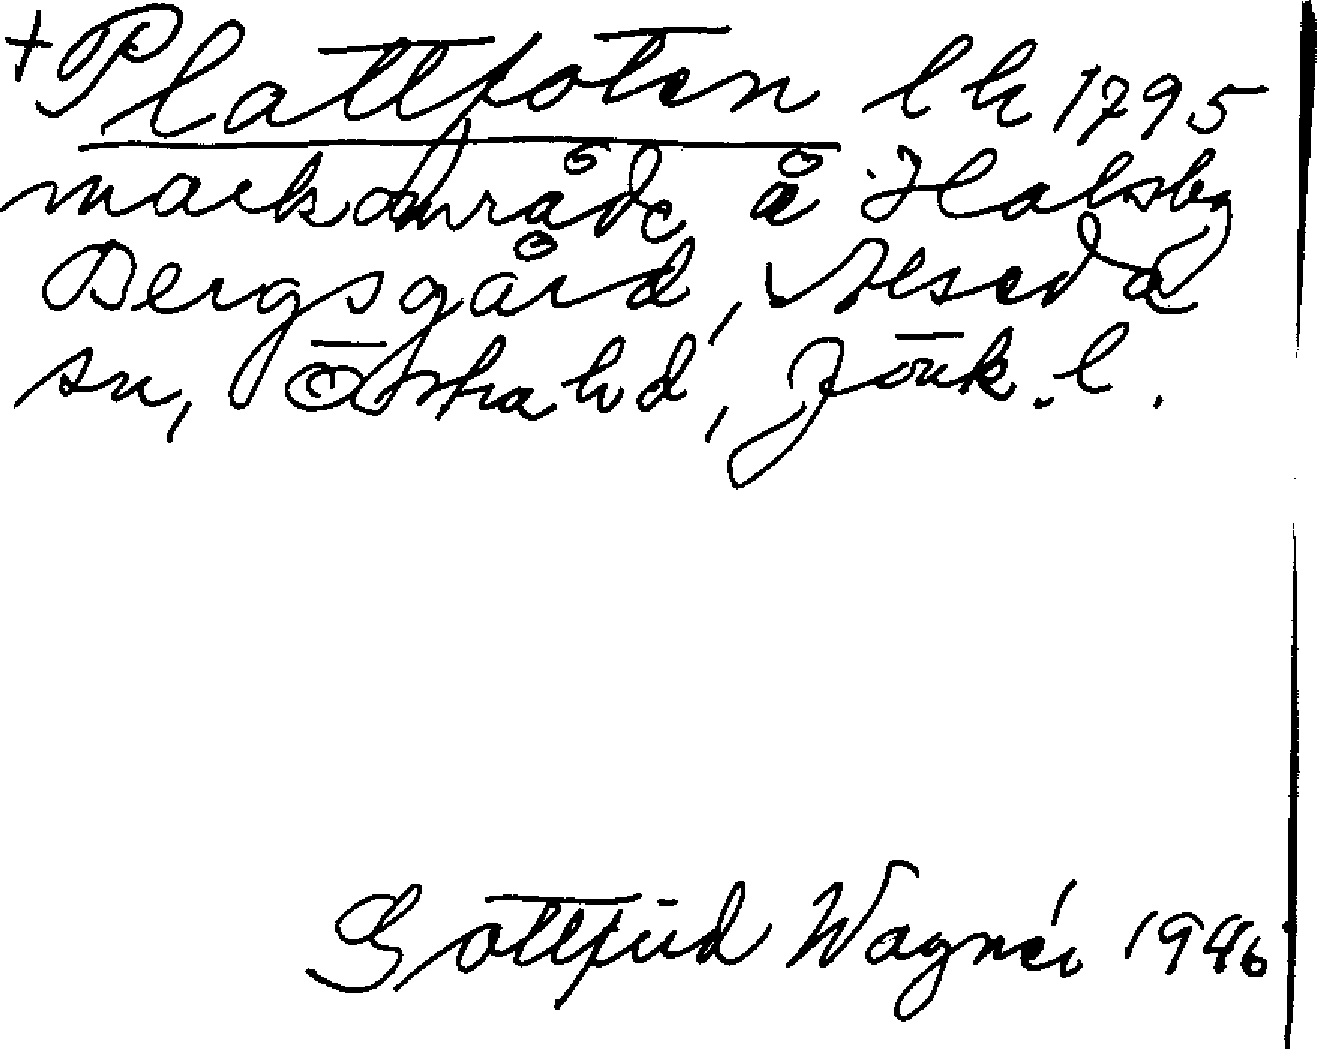 + Plattfoten lh 1795
markområde å Holsby
Bergsgård, Alseda
sn, Östra hd, Jönk. l.
Gottfrid Wagnér 1946